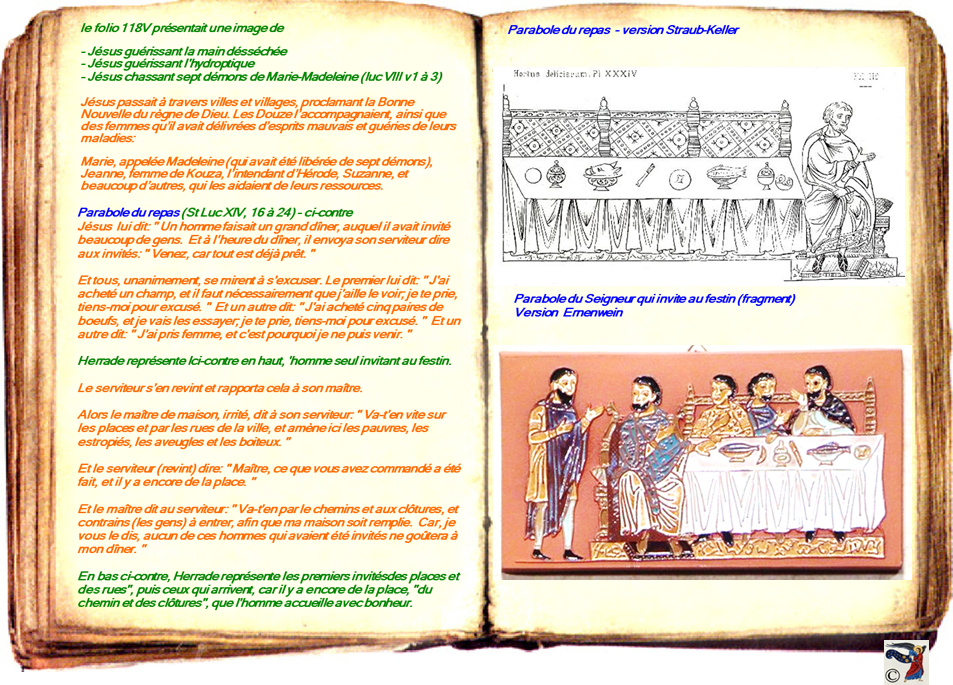 le folio 118V présentait une image de
- Jésus guérissant la main désséchée
- Jésus guérissant l'hydroptique
- Jésus chassant sept démons de Marie-Madeleine (luc VIII v1 à 3)
Jésus passait à travers villes et villages, proclamant la Bonne
Nouvelle du règne de Dieu. Les Douze l'accompagnaient, ainsi que
des femmes qu'il avait délivrées d'esprits mauvais et guéries de leurs
maladies:
Marie, appelée Madeleine (qui avait été libérée de sept démons),
Jeanne, femme de Kouza, l'intendant d'Hérode, Suzanne, et
beaucoup d'autres, qui les aidaient de leurs ressources.
Parabole du repas (St Luc XIV, 16 à 24) - ci-contre
Jésus lui dit: " Un homme faisait un grand dîner, auquel il avait invité
beaucoup de gens. Et à l'heure du dîner, il envoya son serviteur dire
aux invités: " Venez, car tout est déjà prêt. "
Et tous, unanimement, se mirent à s'excuser. Le premier lui dit: " J'ai
acheté un champ, et il faut nécessairement que j'aille le voir; je te prie,
tiens-moi pour excusé. " Et un autre dit: " J'ai acheté cinq paires de
boeufs, et je vais les essayer; je te prie, tiens-moi pour excusé. " Et un
autre dit: " J'ai pris femme, et c'est pourquoi je ne puis venir. "
Herrade représente Ici-contre en haut, 'homme seul invitant au festin.
Le serviteur s'en revint et rapporta cela à son maître.
Alors le maître de maison, irrité, dit à son serviteur: " Va-t'en vite sur
les places et par les rues de la ville, et amène ici les pauvres, les
estropiés, les aveugles et les boiteux. "
Et le serviteur (revint) dire: " Maître, ce que vous avez commandé a été
fait, et il y a encore de la place. "
Et le maître dit au serviteur: " Va-t'en par le chemins et aux clôtures, et
contrains (les gens) à entrer, afin que ma maison soit remplie. Car, je
vous le dis, aucun de ces hommes qui avaient été invités ne goûtera à
mon dîner. "
En bas ci-contre, Herrade représente les premiers invitésdes places et
des rues", puis ceux qui arrivent, car il y a encore de la place, "du
chemin et des clôtures", que l'homme accueille avec bonheur.
Parabole du repas - version Straub-Keller
Hortus deliciarum. Pl XXXIV
Parabole du Seigneur qui invite au festin (fragment)
Version Ernenwein
©